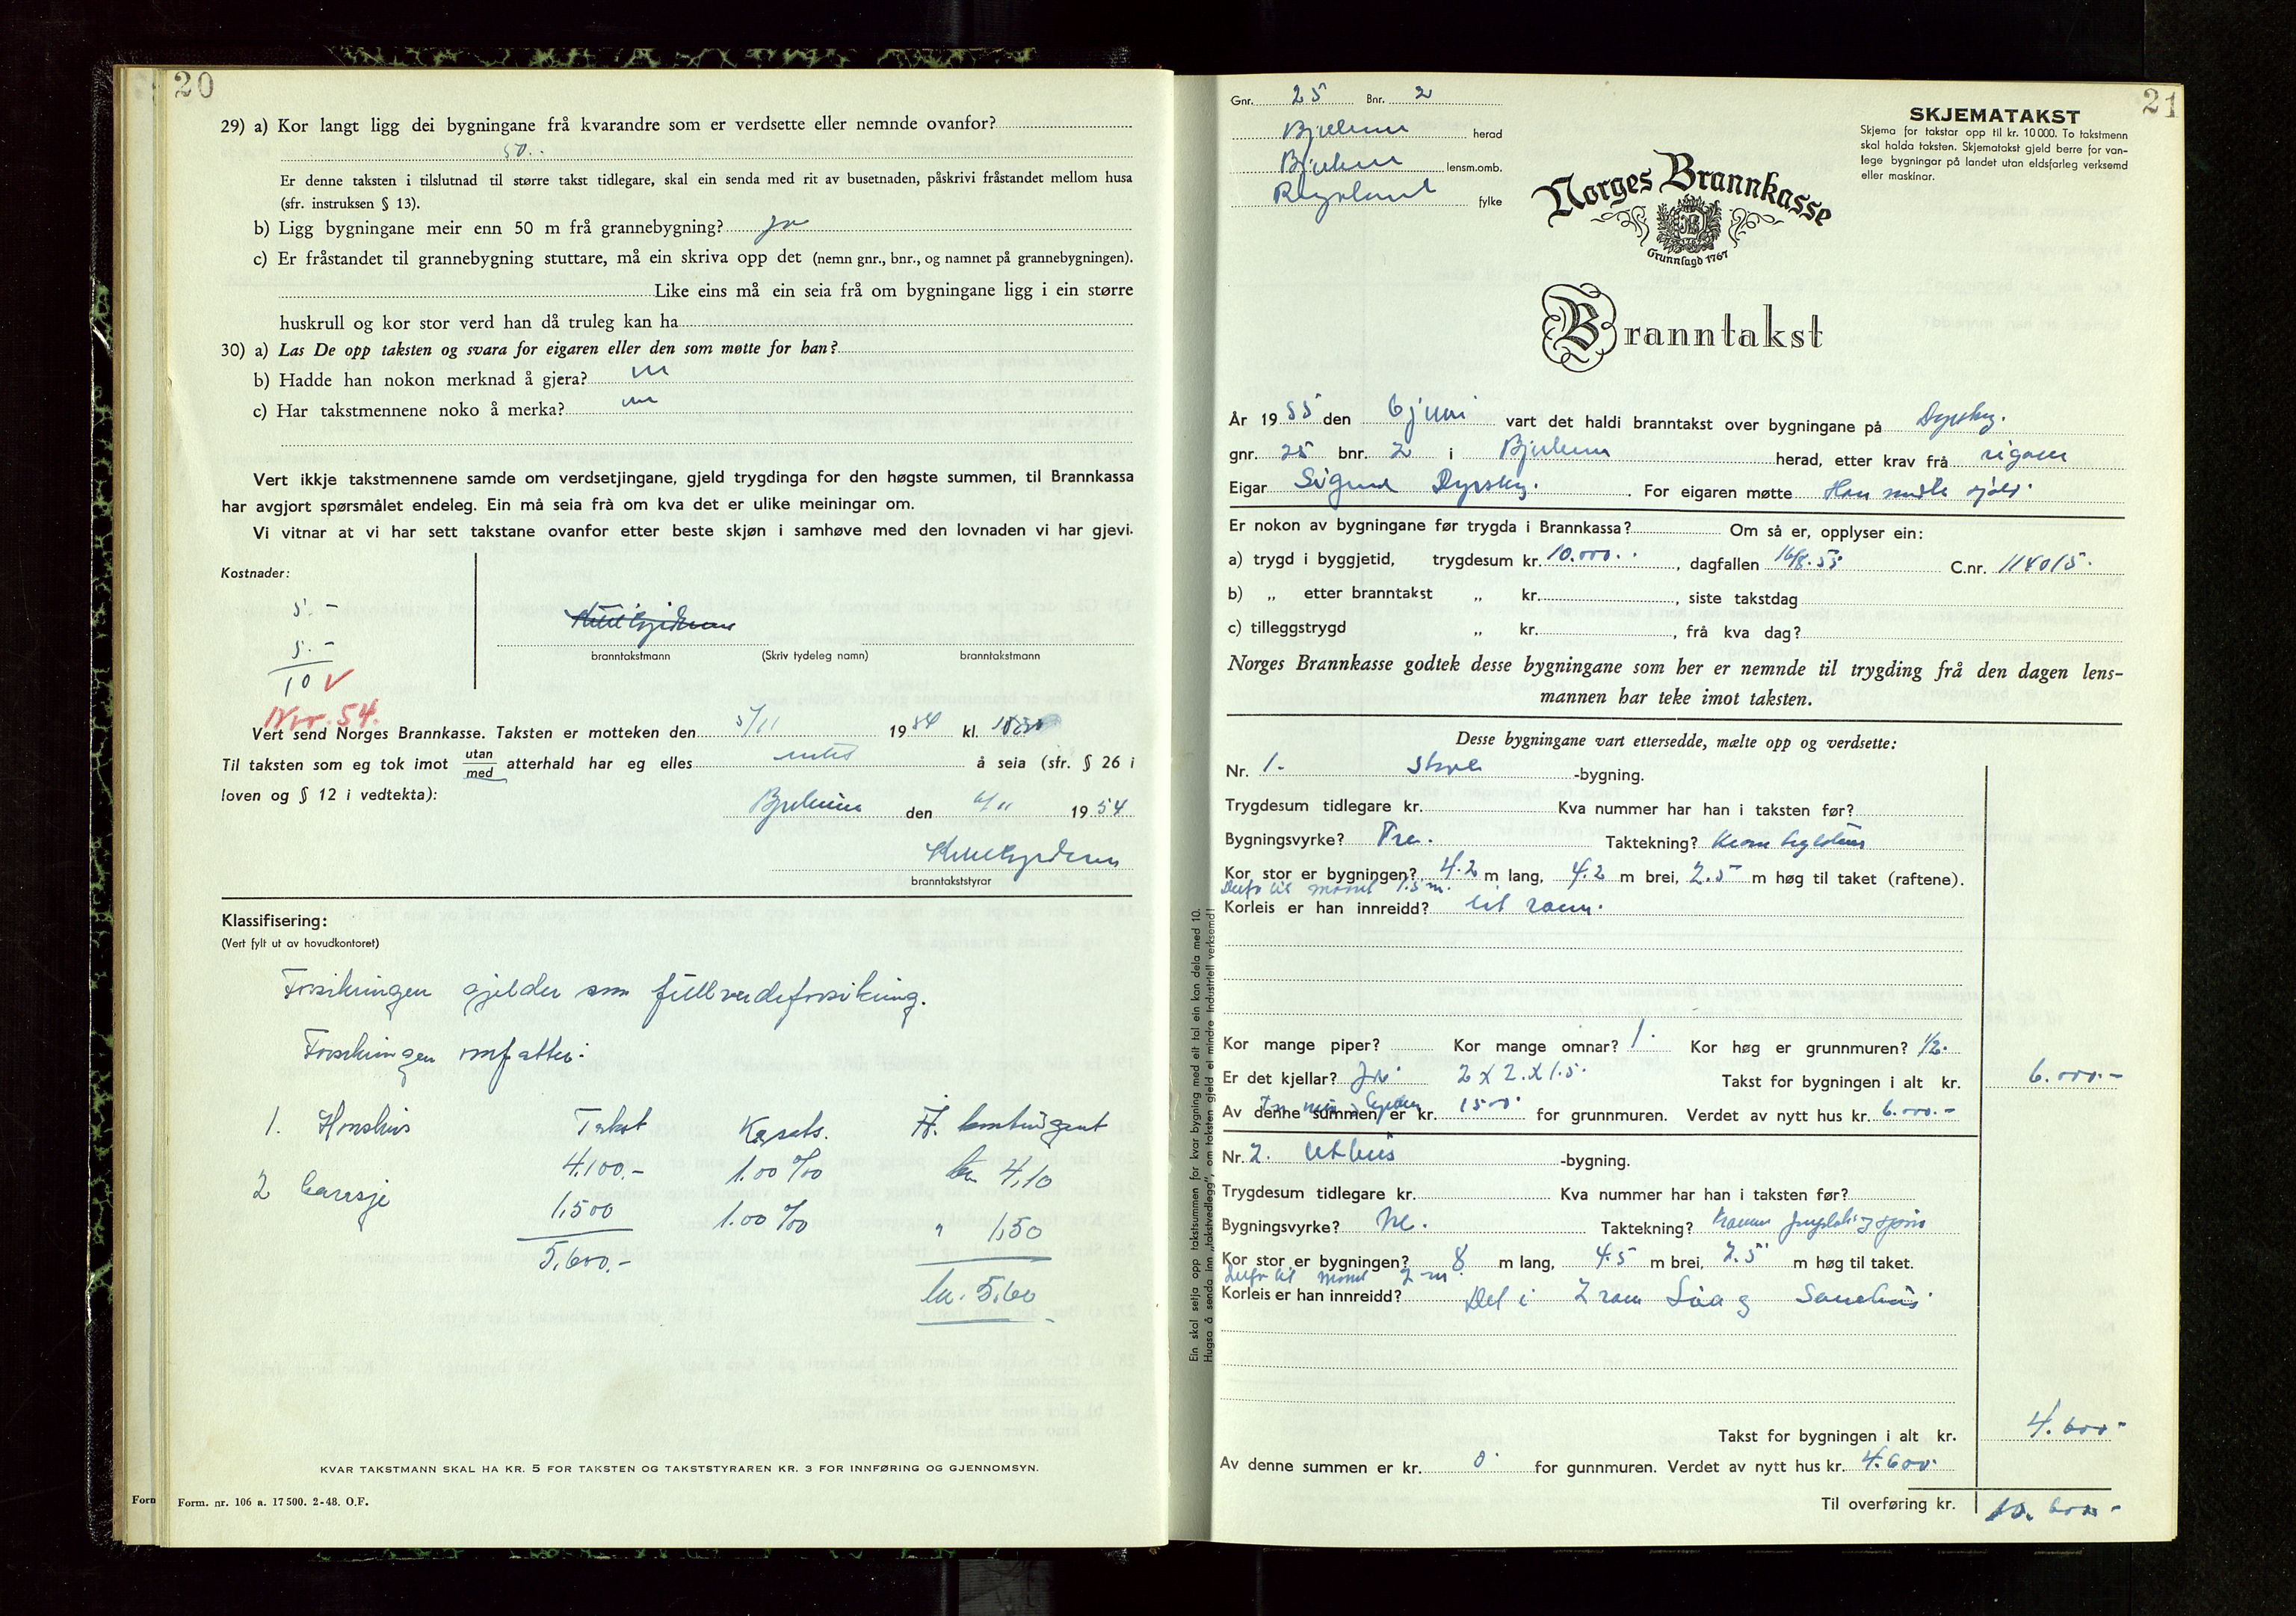 20
29) a) Kor langt ligg dei bygningane frå kvarandre som er verdsette eller nemnde ovanfor?
50.
Er denne taksten i tilslutnad til større takst tidlegare, skal ein senda med rit av busetnaden, påskrivi fråstandet mellom husa
(sfr. instruksen § 13).
b) Ligg bygningane meir enn 50 m frå grannebygning? Ja
c) Er fråstandet til grannebygning stuttare, må ein skriva opp det (nemn gnr., bnr., og namnet på grannebygningen).
Like eins må ein seia frå om bygningane ligg i ein større
huskrull og kor stor verd han då truleg kan ha
30) a) Las De opp taksten og svara for eigaren eller den som møtte for han?
b) Hadde han nokon merknad å gjera?
c) Har takstmennene noko å merka?
Vert ikkje takstmennene samde om verdsetjingane, gjeld trygdinga for den høgste summen, til Brannkassa
har avgjort spørsmålet endeleg. Ein må seia frå om kva det er ulike meiningar om.
Vi vitnar at vi har sett takstane ovanfor etter beste skjøn i samhøve med den lovnaden vi har gjevi.
Kostnader:
5. -
5. -
10 V
branntakstmann (Skriv tydeleg namn) branntakstmann
Nr. 54.
Vert send Norges Brannkasse. Taksten er motteken den 5/11 1954 kl.
Til taksten som eg tok imot utan/med atterhald har eg elles intet å seia (sfr. § 26 i
loven og § 12 i vedtekta):
Bjerkreim den 6/11 1954
branntakststyrar
Klassifisering:
(Vert fylt ut av hovudkontoret)
Forsikringen gjelder som fullverdeforsikring.
Forsikringen omfatter:
1. Hønshus Takst Kapsats. Å. kontingent
4.100.- 1.00 ‰ kr 4,10
2 Garasje 1,500 1.00 ‰ " 1,50
5,600.- kr. 5,60
KVAR TAKSTMANN SKAL HA KR. 5 FOR TAKSTEN OG TAKSTSTYRAREN KR. 3 FOR INNFØRING OG GJENNOMSYN.
Form. nr. 106 a. 17 500. 2-48. O.F.
Forn
21
Gnr. 25 Bnr. 2
Bjerkreim herad
Bjerkreim lensm.omb.
Rogaland fylke
SKJEMATAKST
Skjema for takstar opp til kr. 10 000. To takstmenn
skal halda taksten. Skjematakst gjeld berre for van-
lege bygningar på landet utan eldsfarleg verksemd
eller maskinar.
Norges Brannkasse
Grunnlagd 1767
Branntakst
År 1955 den 6 juni vart det haldi branntakst over bygningane på Dyrskog.
gnr. 25 bnr. 2 i Bjerkreim herad, etter krav frå eigaren
Eigar Sigurd Dyrskog. For eigaren møtte Han møtte sjølv.
Er nokon av bygningane før trygda i Brannkassa? Om så er, opplyser ein:
a) trygd i byggjetid, trygdesum kr. 10.000. , dagfallen 16/8.55 C.nr. 114015.
b) „ etter branntakst „ kr. , siste takstdag
c) tilleggstrygd „ kr. , frå kva dag?
Norges Brannkasse godtek desse bygningane som her er nemnde til trygding frå den dagen lens-
mannen har teke imot taksten.
Desse bygningane vart ettersedde, mælte opp og verdsette:
Nr. 1. -bygning.
Trygdesum tidlegare kr. Kva nummer har han i taksten før?
Bygningsvyrke? Tre. Taktekning?
Kor stor er bygningen? 4.2 m lang, 4.2 m brei, 2.5 m høg til taket (raftene).
til mønet 1.5 m.
Korleis er han innreidd? eit rom.
Kor mange piper? Kor mange omnar? 1. Kor høg er grunnmuren? 1/2.
Er det kjellar? Ja. 2 x 2. x 1.5. Takst for bygningen i alt kr. 6.000.-
Av denne summen er kr. 1500. for grunnmuren. Verdet av nytt hus kr. 6.000.-
Nr. 2. Uthus -bygning.
Trygdesum tidlegare kr. Kva nummer har han i taksten før?
Bygningsvyrke? Taktekning?
Kor stor er bygningen? 8 m lang, 4.5 m brei, 2.5 m høg til taket.
til mønet 2 m.
Korleis er han innreidd? Del i 2 rom
Takst for bygningen i alt kr. 4.600-
Av denne summen er kr. 0. for gunnmuren. Verdet av nytt hus kr. 4.600.
Til overføring kr. 10.600.-
Ein skal setja opp takstsummen for kvar bygning med eit tal ein kan dela med 10.
Hugsa å senda inn „takstvedlegg", om taksten gjeld ei mindre industriell verksemd!